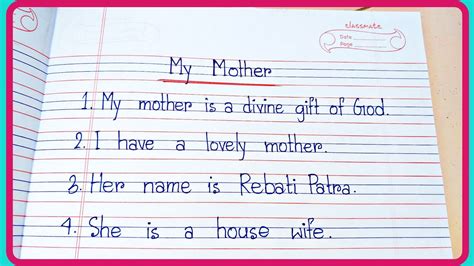 classmate
Date
Page
My Mother
1. My mother is a divine gift of God.
2. I have a lovely mother.
3. Her name is Rebati Patra.
4. She is a house wife.